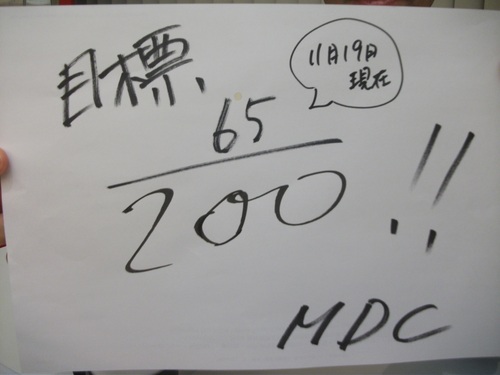 目標
11月19日
現在
65
200!!
MDC